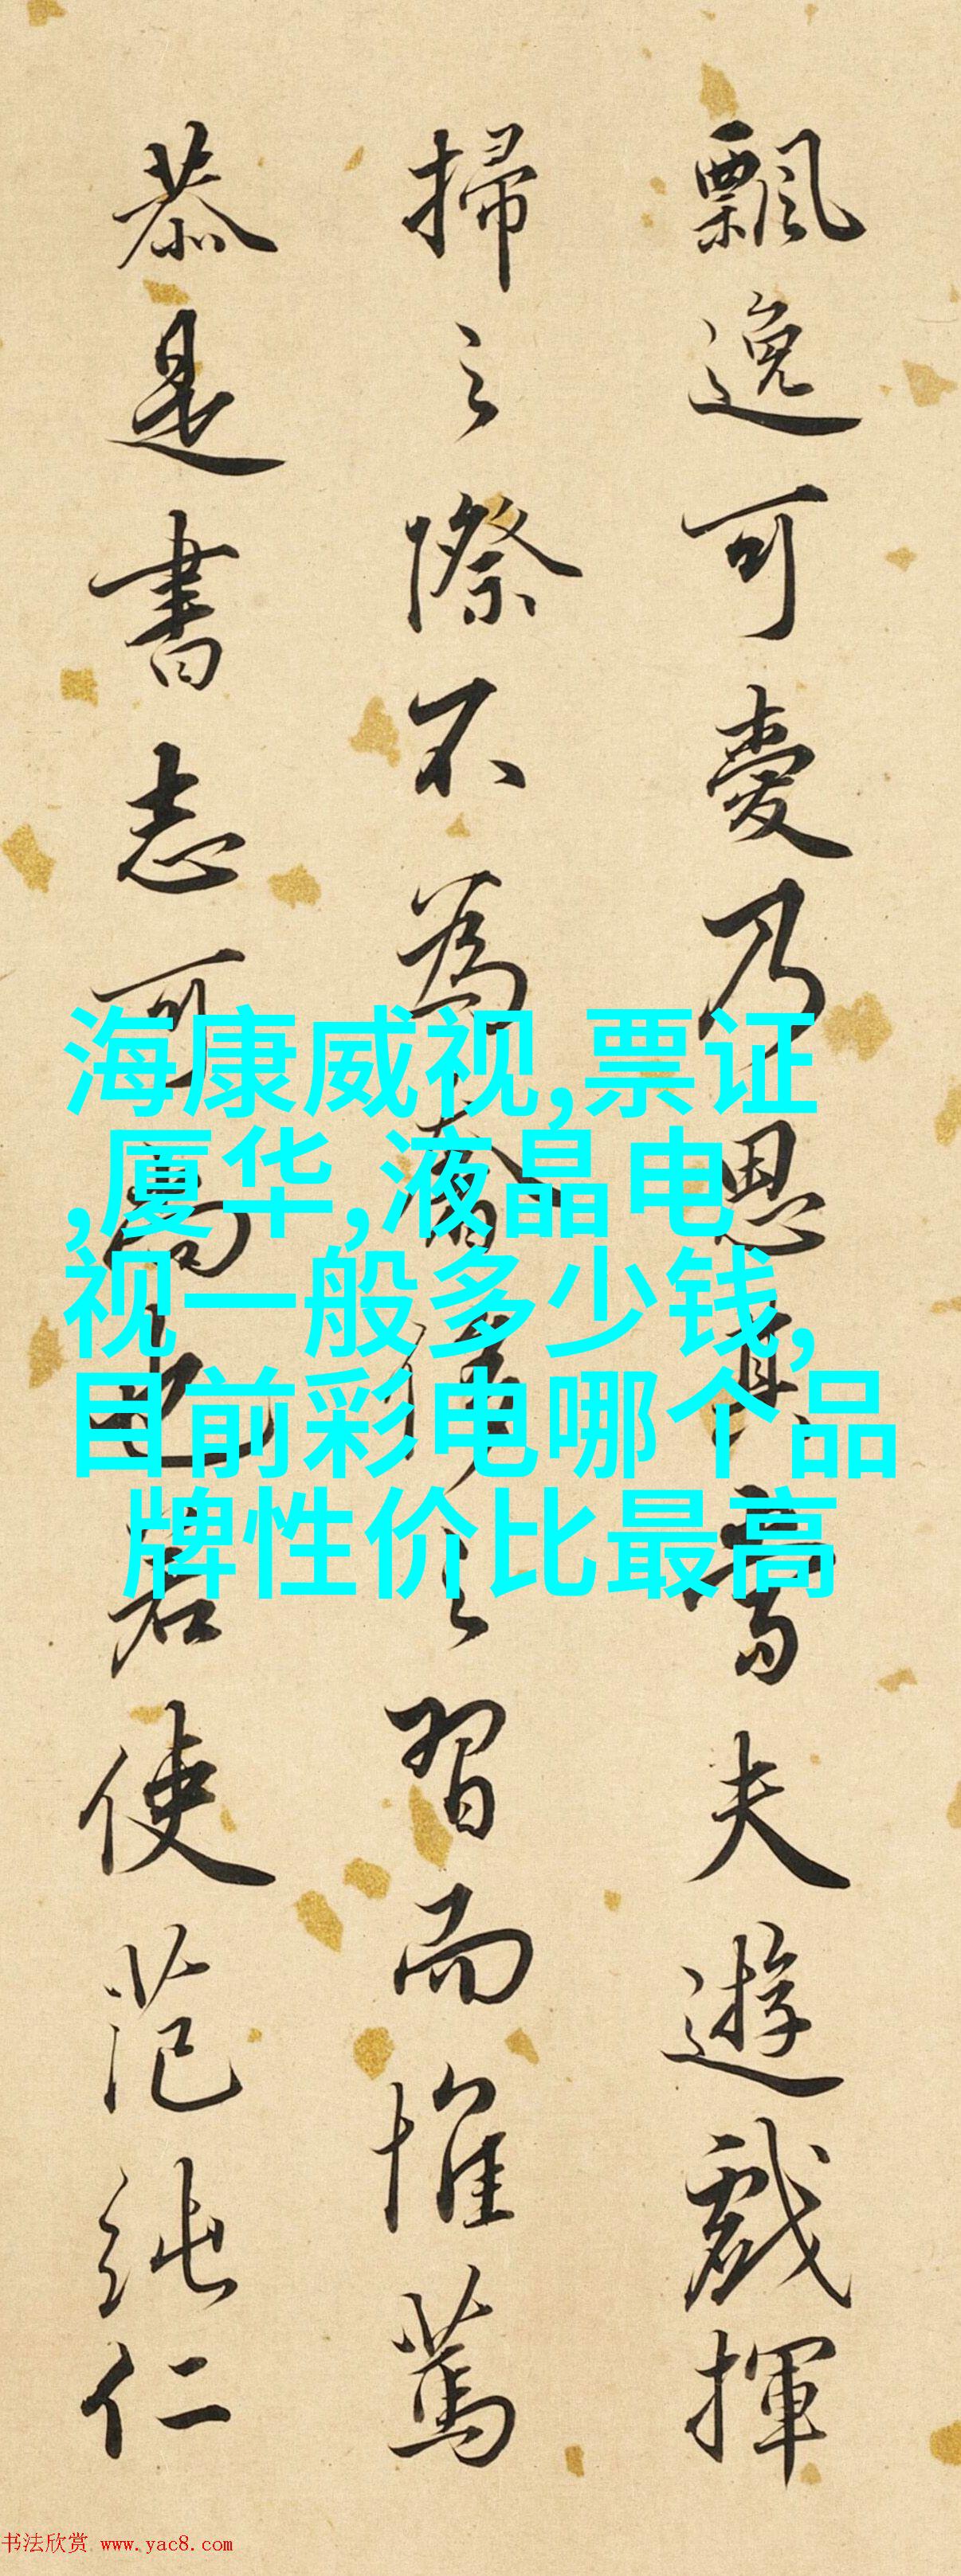 飄逸可愛乃思夫遊戲揮
掃之際不為奢侈之習而惟篤
恭是書志可尚也使范純仁
海康威视,票证
,厦华,液晶电
视一般多少钱,
目前彩电哪个品
牌性价比最高
书法欣赏 www.yac8.com